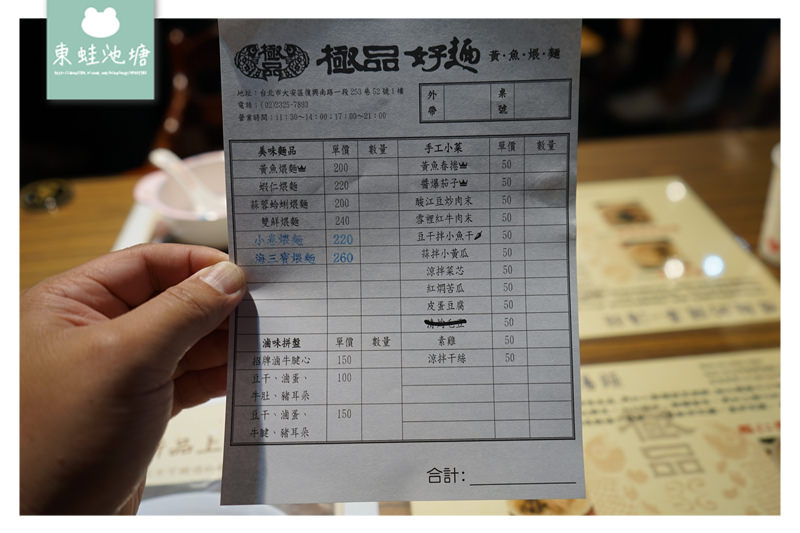 東蛙池塘
極品
極品 好麵 黃·魚·煨·麵
地址:台北市大安區復興南路一段253巷52號1樓
電話:(02)2325-7893
營業時間:11:30~14:00;17:00~21:00
外帶 桌號
美味麵品 單價 數量 手工小菜 單價 數量
黃魚煨麵 200 黃魚春捲 50
蝦仁煨麵 220 醬爆茄子 50
蒜蓉蛤蜊煨麵 200 酸江豆炒肉末 50
雙鮮煨麵 240 雪裡紅牛肉末 50
小卷煨麵 220 豆干拌小魚干 50
海三寶煨麵 260 蒜拌小黃瓜 50
涼拌菜芯 50
紅燜苦瓜 50
皮蛋豆腐 50
50
滷味拼盤 單價 數量 素雞 50
招牌滷牛腱心 150 涼拌干絲 50
豆干、滷蛋、 100
牛肚、豬耳朵
豆干、滷蛋、 150
牛腱、豬耳朵
合計:
極品
品上